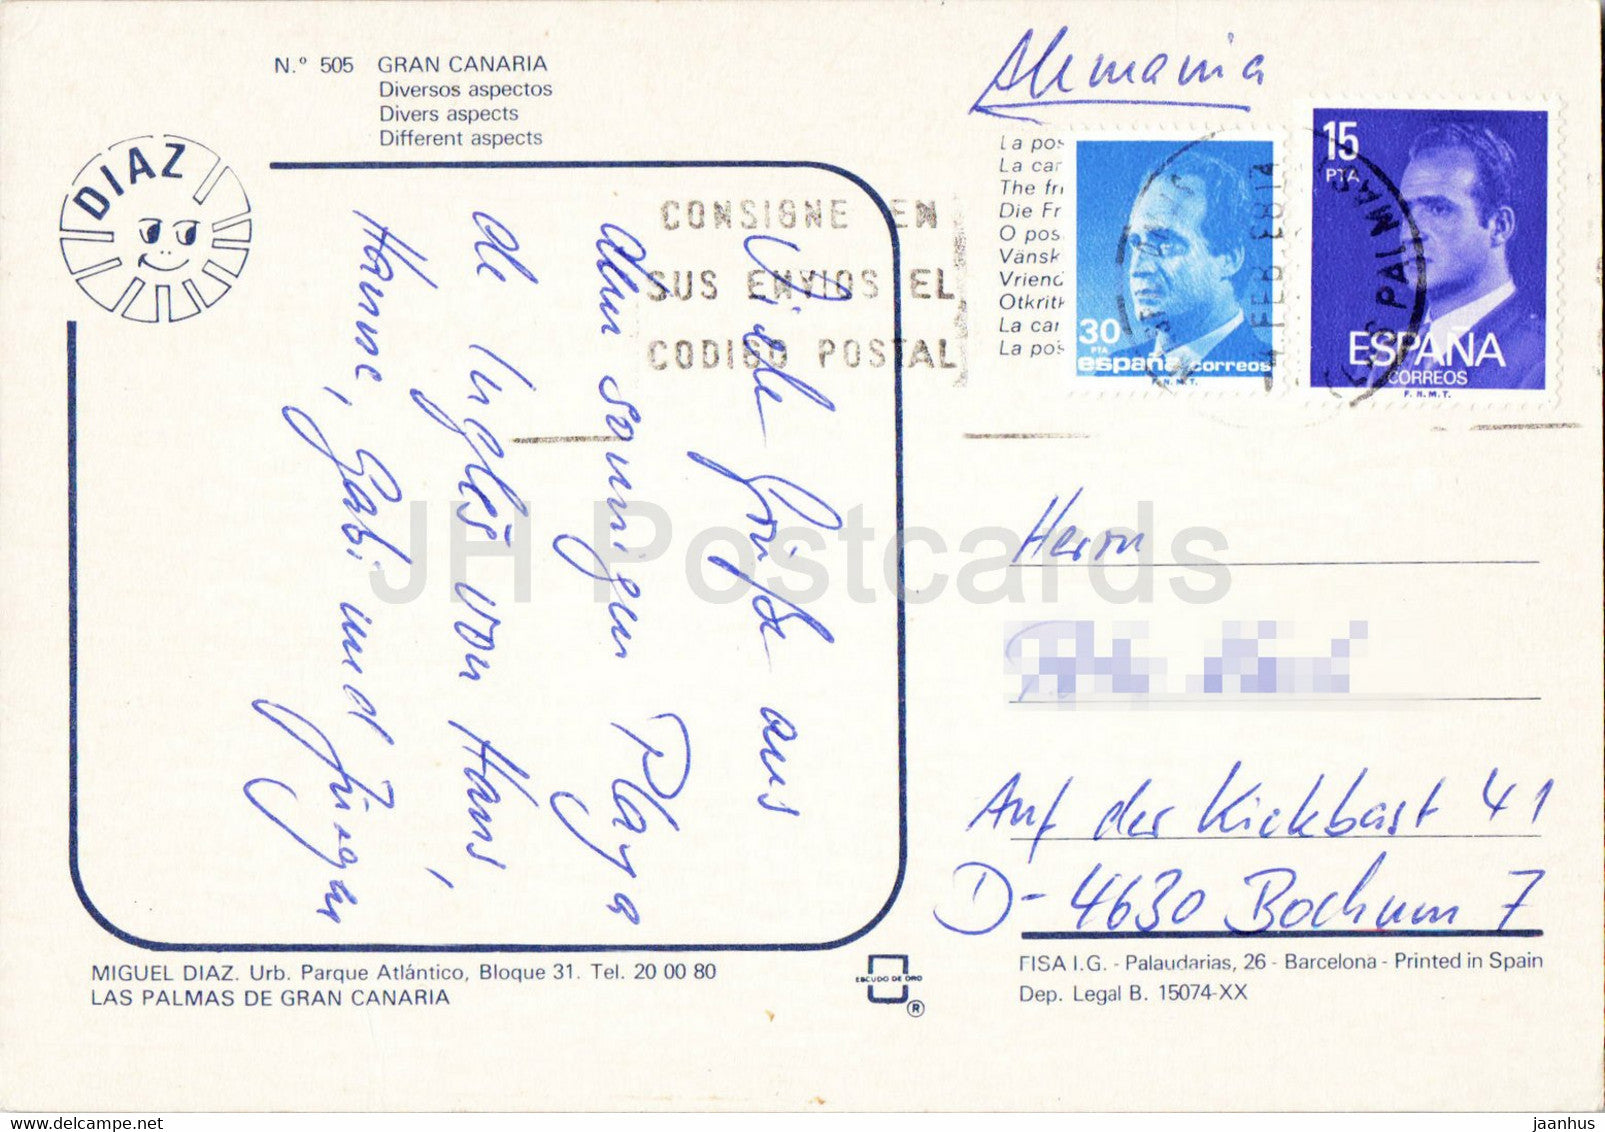 N.º 505 GRAN CANARIA
Diversos aspectos
Divers aspects
Different aspects
DIAZ
Alemania
La pos
La car
The fri
Die Fr
O pos
Vänsk
Vriend
Otkritk
La car
La pos
30
PTA
españa correos
F.N.M.T.
15
PTA
ESPAÑA
CORREOS
F.N.M.T.
CONSIGNE EN
SUS ENVIOS EL
CODIGO POSTAL
FEB
PALMAS
Viele Grüße aus
dem sonnigen Playa
de Inglés von Hans,
Hanne, Gabi und Jürgen
JH Postcards
Herrn
Auf der Kickbast 41
D-4630 Bochum 7
MIGUEL DIAZ. Urb. Parque Atlántico, Bloque 31. Tel. 20 00 80
LAS PALMAS DE GRAN CANARIA
ESCUDO DE ORO
®
FISA I.G. - Palaudarias, 26 - Barcelona - Printed in Spain
Dep. Legal B. 15074-XX
jaanhus